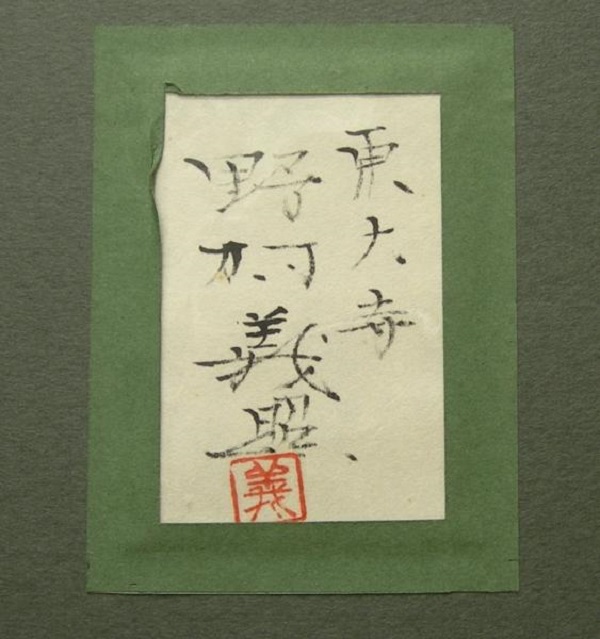 東大寺
野村義照
義